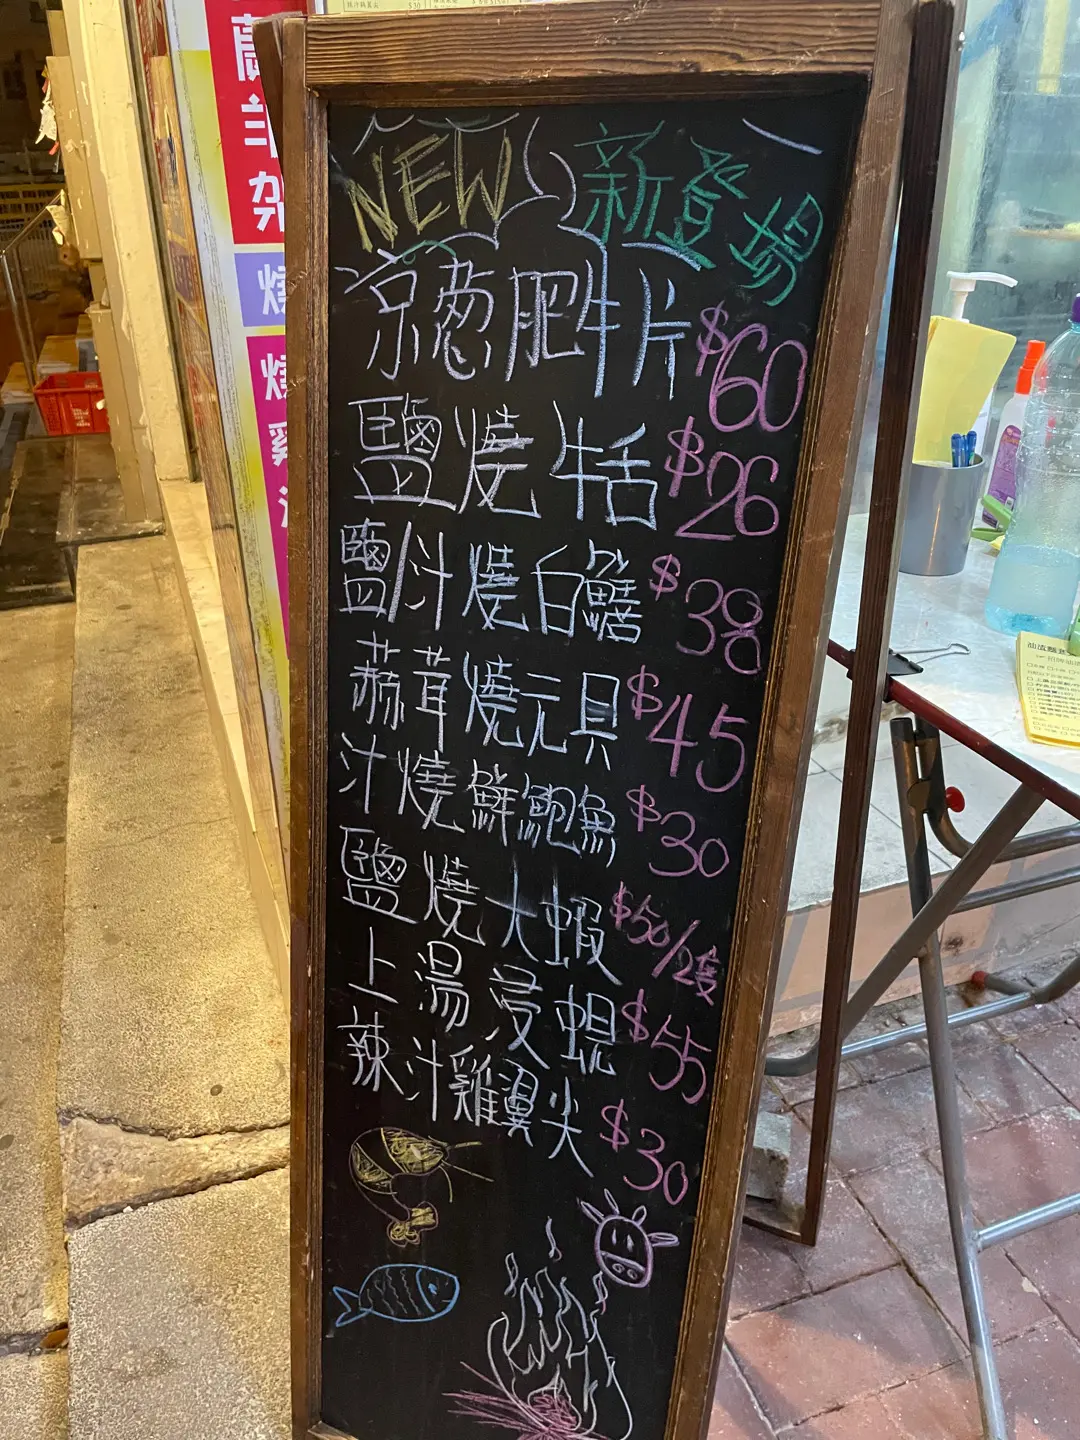 NEW 新登場
京葱肥牛片 $60
鹽燒牛舌 $26
鹽/汁燒白鱔 $38
蒜茸燒元貝 $45
汁燒鮮鮑魚 $30
鹽燒大蝦 $50/2隻
上湯浸蜆 $55
辣汁雞翼尖 $30
燒
燒雞